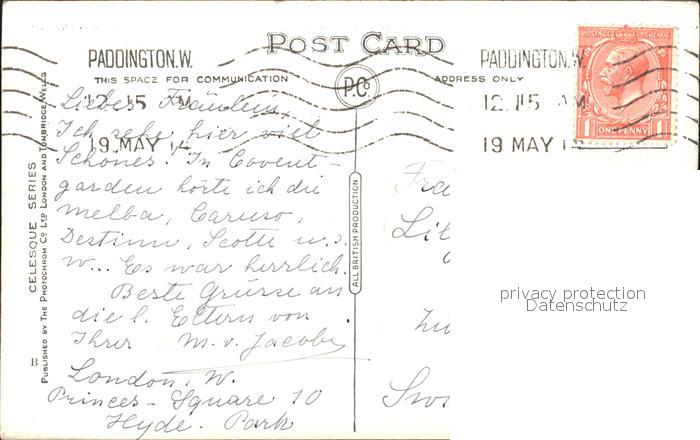 POST CARD
THIS SPACE FOR COMMUNICATION
ADDRESS ONLY
PADDINGTON.W.
12.15 AM
19 MAY 14
PADDINGTON.W.
12.15 AM
19 MAY
P.Co
POSTAGE REVENUE
1 ONE PENNY 1
CELESQUE SERIES
PUBLISHED BY THE PHOTOCHROM CO LTD LONDON AND TUNBRIDGE WELLS
ALL BRITISH PRODUCTION
B
Liebes Fräulein,
Ich sehe hier viel
Schönes. In Covent-
garden hörte ich die
Melba, Caruso,
Destinn, Scotti u.s.
w... Es war herrlich.
Beste Grüsse an
die l. Eltern von
Ihrer M. v. Jacobs
London, W.
Princes-Square 10
Hyde-Park
privacy protection
Datenschutz